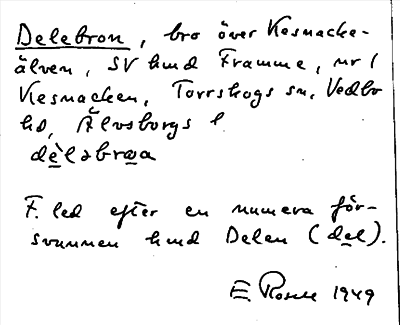 Delebron, bro över Kesnacke-
älven, SV hmd Framme, nr i
Kesnacken, Torrskogs sn, Vedbo
hd, Älvsborgs l
delabroa
F. led efter en numera för-
svunnen hmd Delen (del).
E 1949